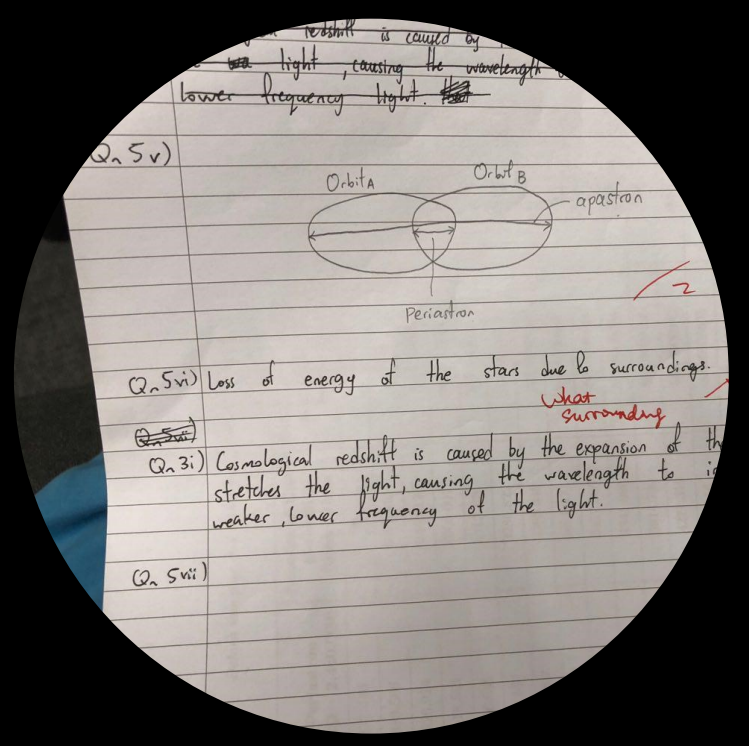 redshift is caused by
light , causing the wavelength
lower frequency light.
Qn 5v)
Orbit A
Orbit B
apastron
Periastron
2
Qn 5vi) Loss of energy of the stars due to surroundings.
What
surrounding
Qn 5vii)
Qn 3i) Cosmological redshift is caused by the expansion of
stretches the light, causing the wavelength to
weaker, lower frequency of the light.
Qn 5vii)